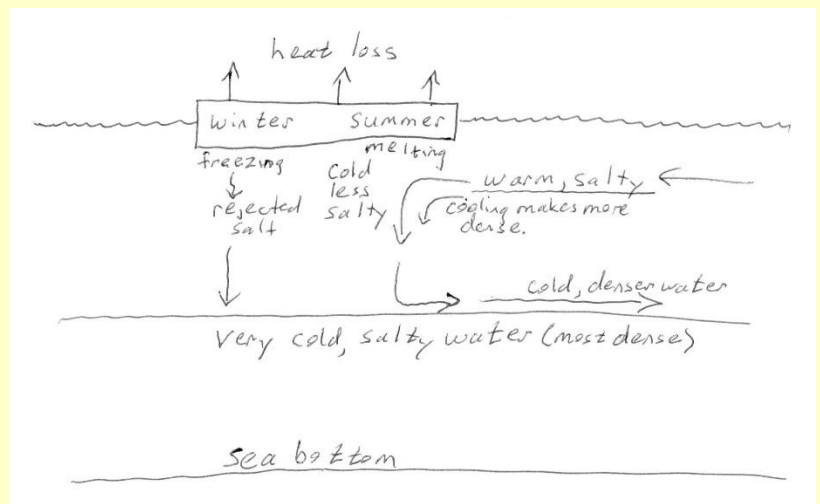 heat loss
winter summer
freezing
melting
rejected
salt
cold
less
salty
warm, salty
cooling makes more
dense.
cold, denser water
very cold, salty water (most dense)
sea bottom